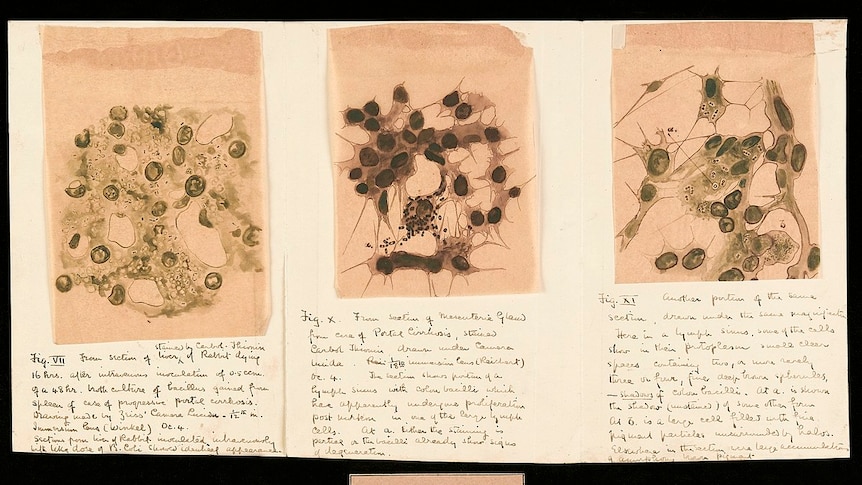 stained by Carbol-Thionin
Fig. VII From section of liver of Rabbit dying
16 hrs. after intravenous inoculation of 0.5 ccm.
of a 48 hr. broth culture of bacillus gained from
spleen of case of progressive portal cirrhosis.
Drawing made by Zeiss' Camera Lucida - 1/12 in.
Immersion Lens (Winkel) Oc. 4.
Sections from liver of Rabbit inoculated intravenously
with like dose of B. Coli showed identical appearances
Fig. X. From section of Mesenteric Gland
from case of Portal Cirrhosis, stained
Carbol Thionin drawn under Camera
lucida 1/12 immersion lens (Reichert)
Oc. 4. The section shows portion of a
lymph sinus with colon bacilli which
have apparently undergone proliferation
post mortem in one of the large lymph
cells. At a. either the staining is
partial or the bacilli already show signs
of degeneration.
Fig. XI Another portion of the same
section, drawn under the same magnification
Here in a lymph sinus, some of the cells
show in their protoplasm small clear
spaces containing two, or more rarely
three or four, fine deep brown spherules,
- shadows of colon bacilli. At a. is shown
the shadow (unstained) of some other form
At b. is a large cell filled with fine
pigment particles unsurrounded by halos.
Elsewhere in the section were large accumulations
of brown pigment